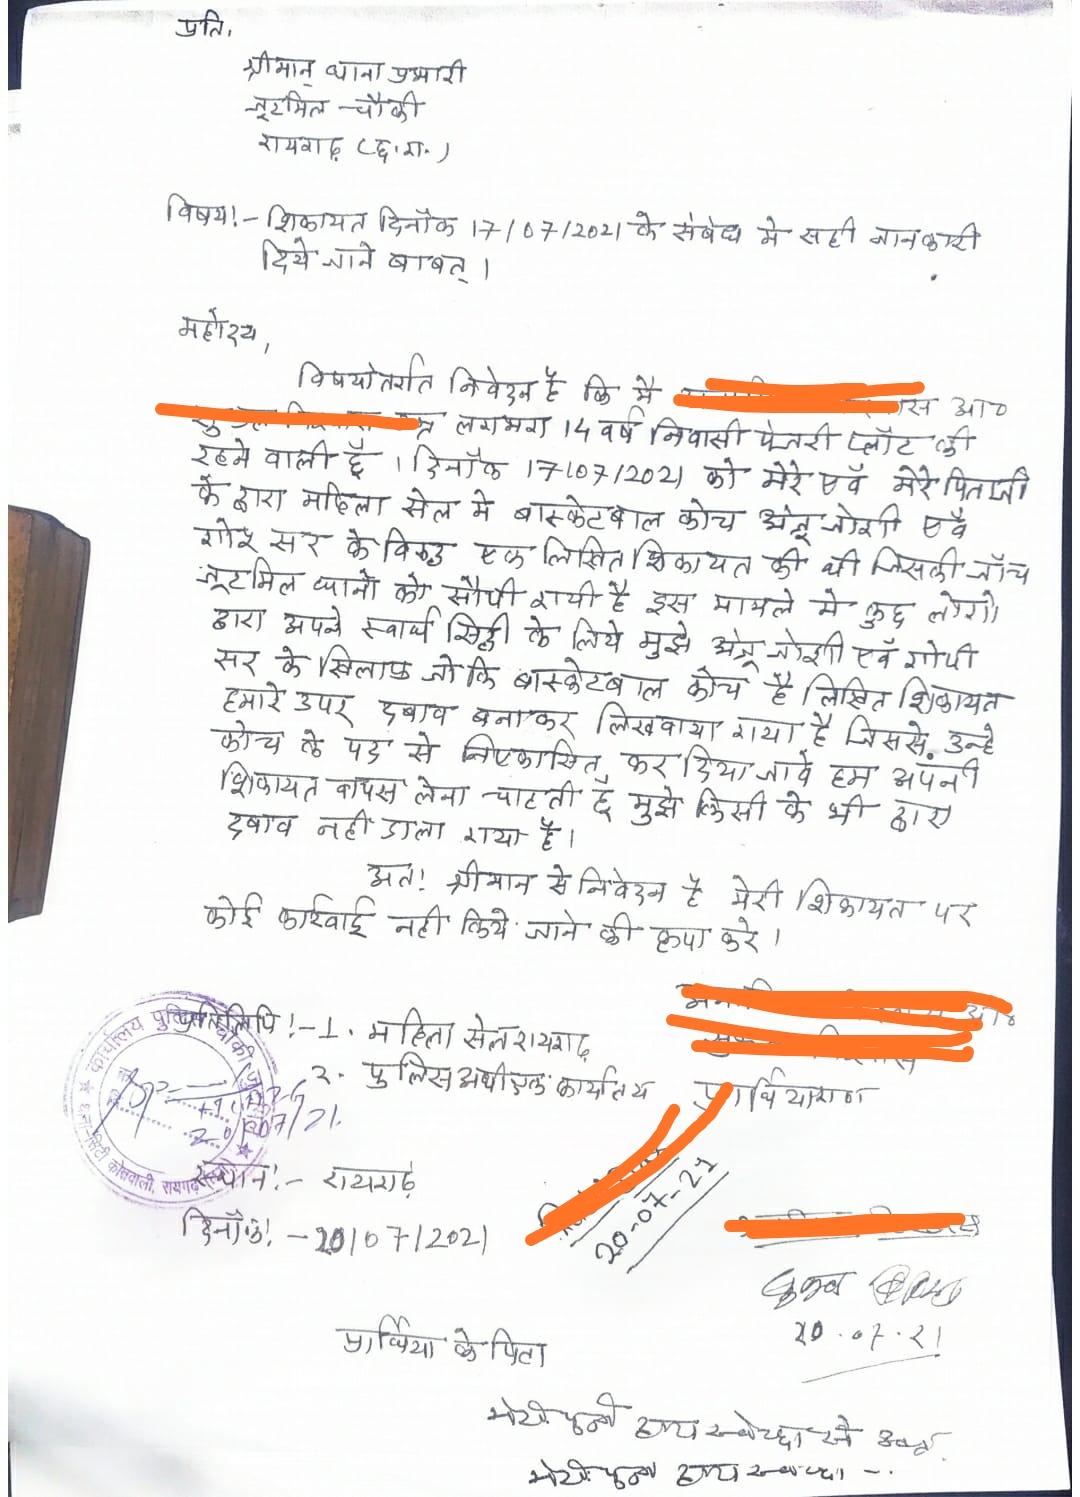 प्रति,
श्रीमान् थाना प्रभारी
जूटमिल चौकी
रायगढ़ (छ.ग.)
विषय:- शिकायत दिनाँक 17/07/2021 के संबंध में सही जानकारी
दिये जाने बाबत् ।
महोदय,
विषयांतर्गत निवेदन है कि मै
आ०
लगभग 14 वर्ष निवासी प्लॉट की
रहने वाली हूँ । दिनाँक 17/07/2021 को मेरे एवँ मेरे पिताजी
के द्वारा महिला सेल मे बास्केटबाल कोच जोशी एवँ
सर के विरुद्ध एक लिखित शिकायत की थी जिसकी जाँच
जूटमिल थाने को सौपी गयी है इस मामले मे कुछ लोगो
द्वारा अपने स्वार्थ सिद्दी के लिये मुझे जोशी एवँ गोपी
सर के खिलाफ जो कि बास्केटबाल कोच है लिखित शिकायत
हमारे उपर दबाव बनाकर लिखवाया गया है जिससे उन्हे
कोच के पद से निष्कासित कर दिया जावे हम अपनी
शिकायत वापस लेना चाहती हूँ मुझे किसी के भी द्वारा
दबाव नही डाला गया है ।
अत: श्रीमान से निवेदन है मेरी शिकायत पर
कोई कार्रवाई नही किये जाने की कृपा करे ।
आ०
प्रतिलिपि :- 1. महिला सेल रायगढ़
2. पुलिस अधीक्षक कार्यालय
प्रार्थियागण
कार्यालय पुलिस चौकी
थाना-सिटी कोतवाली, रायगढ़
20/07/21
स्थान :- रायगढ़
दिनाँक :- 20/07/2021
20-07-21
20.07.21
प्रार्थिया के पिता